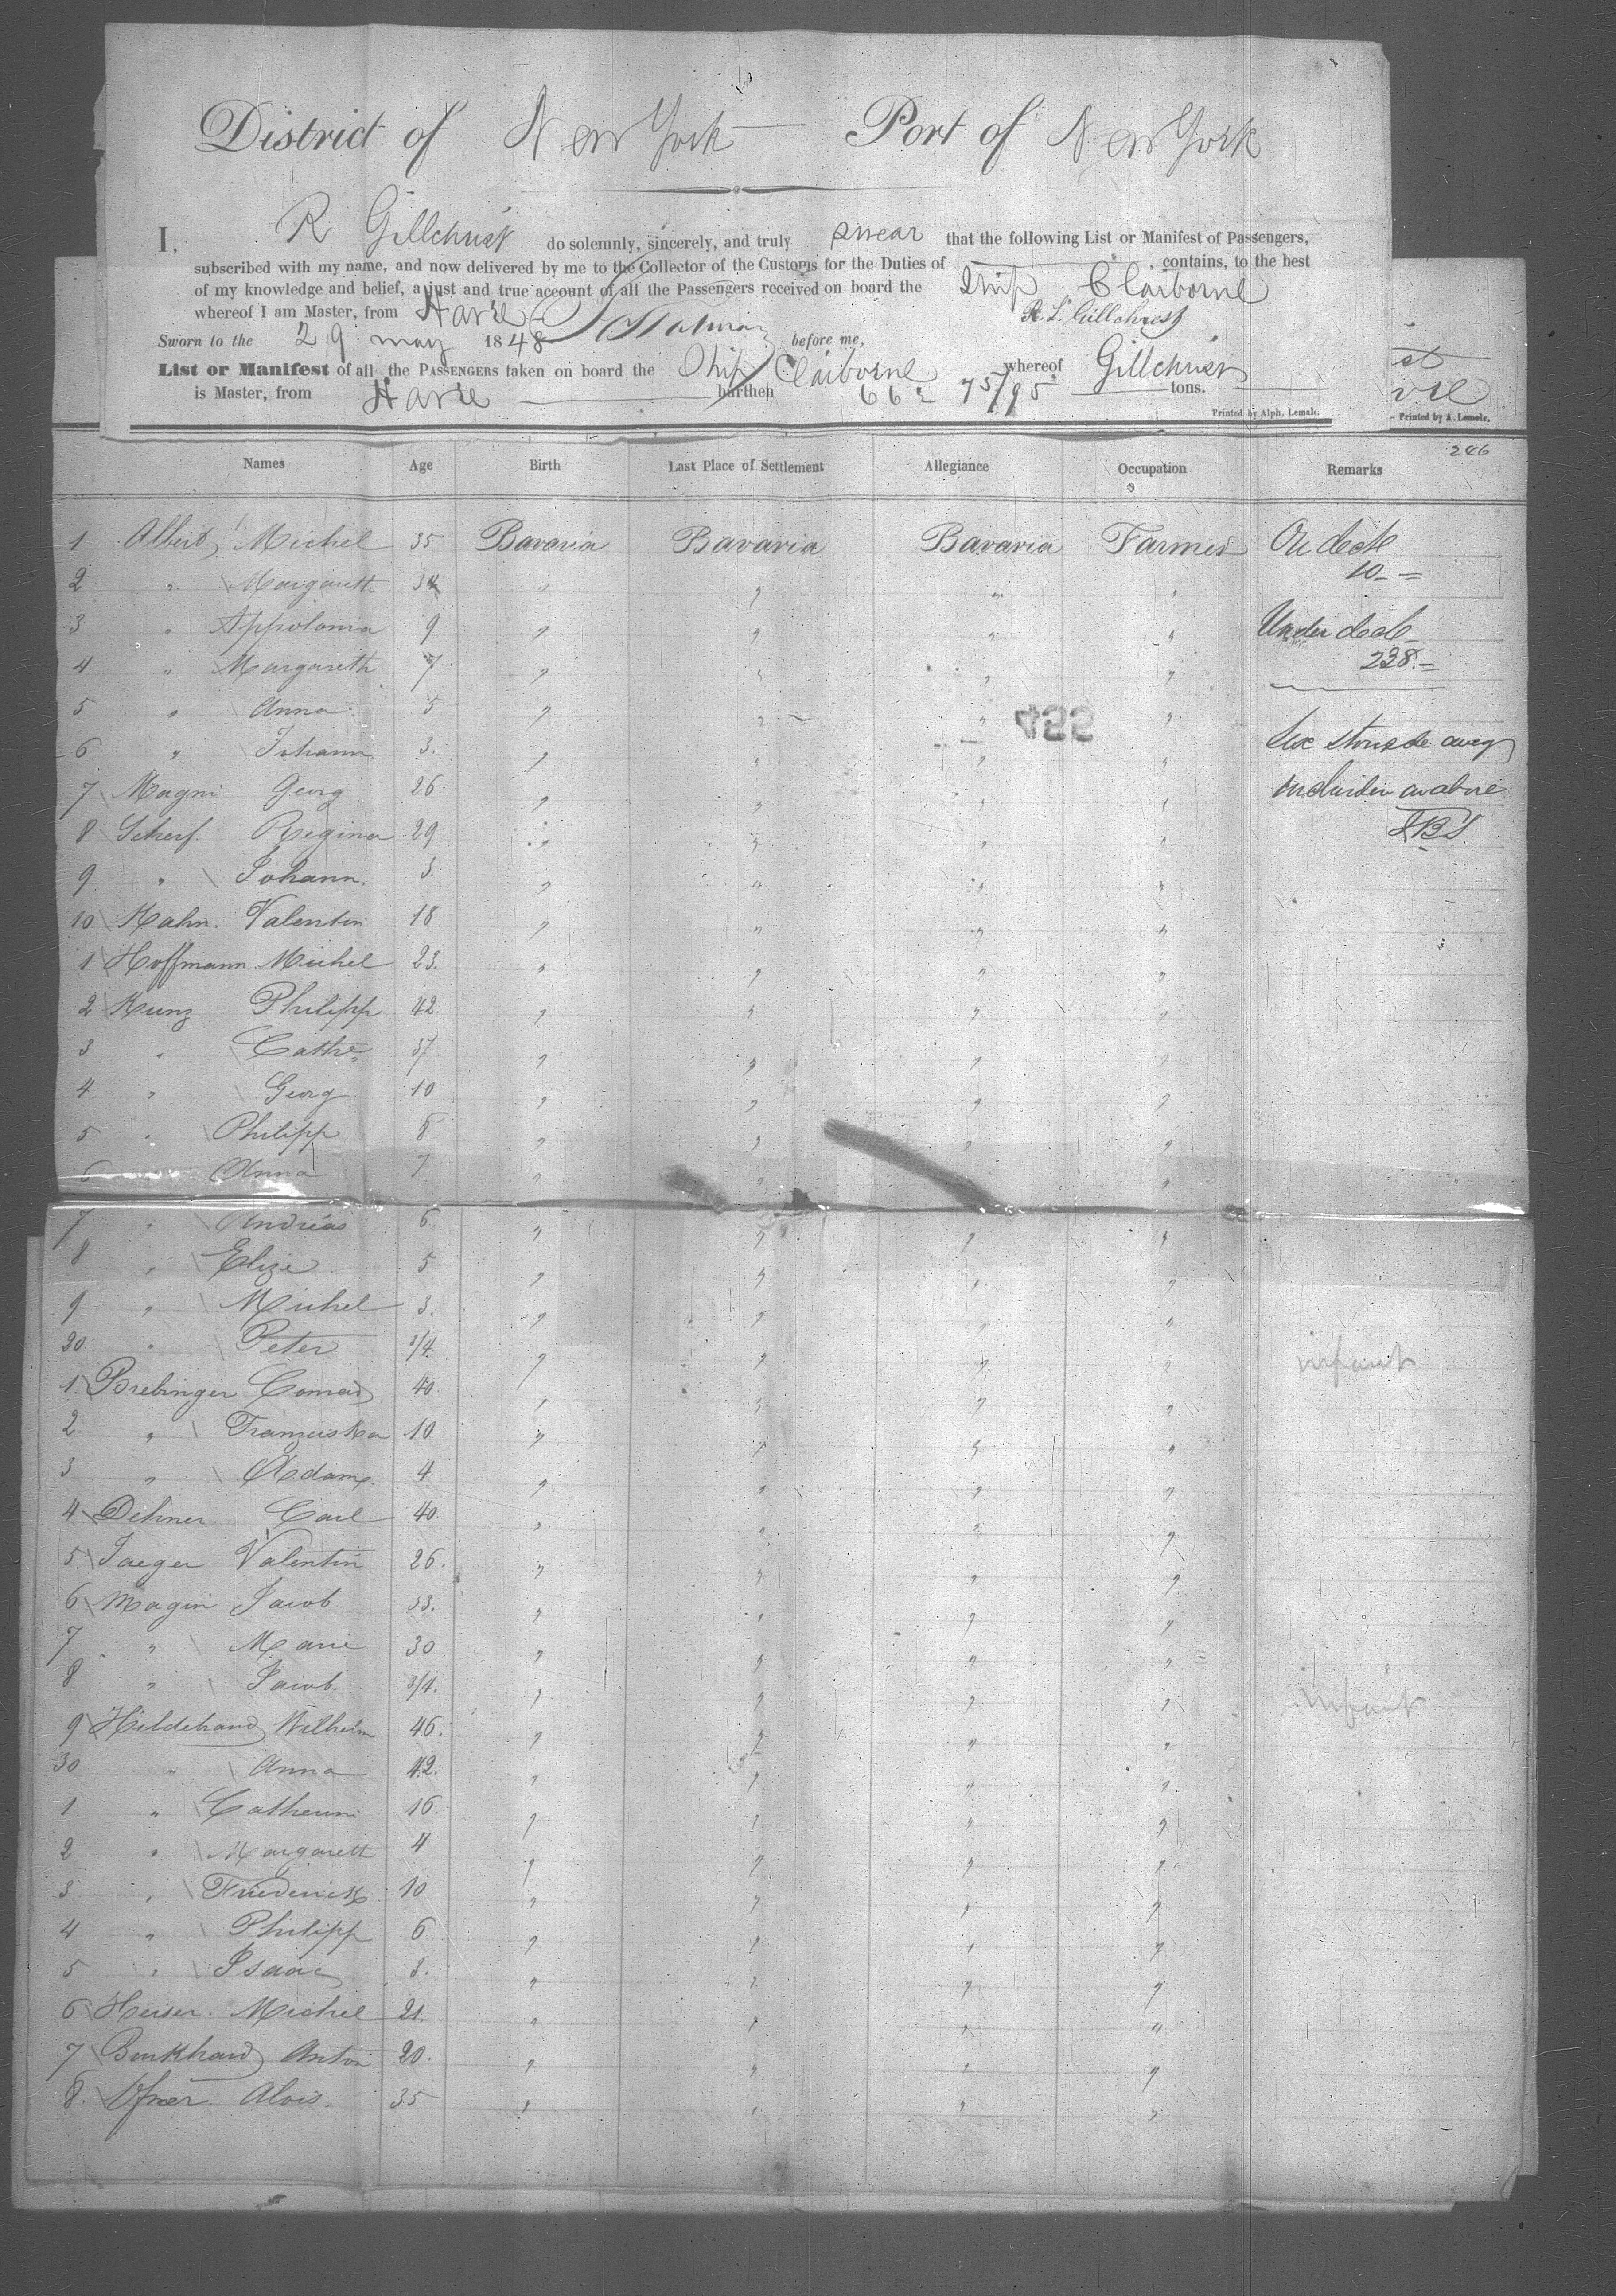 District of New York Port of New York
I, R Gillchrest do solemnly, sincerely, and truly swear that the following List or Manifest of Passengers,
subscribed with my name, and now delivered by me to the Collector of the Customs for the Duties of , contains, to the best
of my knowledge and belief, a just and true account of all the Passengers received on board the Ship Claiborne
whereof I am Master, from Havre R. L. Gillchrest
Sworn to the 29 may 1848 before me,
List or Manifest of all the PASSENGERS taken on board the Ship Claiborne whereof Gillchrest
is Master, from Havre burthen 662 75/95 tons.
Printed by Alph. Lemale.
st
vre
Printed by A. Lemale.
246
Names Age Birth Last Place of Settlement Allegiance Occupation Remarks
1 Albert, Michel 35 Bavaria Bavaria Bavaria Farmer On deck
2 " Margareth 34 " " " " 10
3 " Appolonia 9 " " " " Under deck
4 " Margareth 7 " " " " 238
5 " Anna 5 " " " "
554
6 " Johann 3. " " " " Six
7 Magni Georg 26 " " " "
8 Scherf. Regina 29 " " " "
9 " Johann. 3 " " " "
10 Hahn. Valentin 18 " " " "
1 Hoffmann Michel 23. " " " "
2 Kunz Philipp 42 " " " "
3 " Cathe 37 " " " "
4 " Georg 10 " " " "
5 " Philipp 8 " " " "
6 " Anna 7 " " "
7 " Andreas 6. " " " "
8 " Elize 5 " " " "
9 " Michel 3. " " " "
20 " Peter 3/4 " " " " infant
1. Brebinger Conrad 40. " " " "
2 " Franziska 10 " " " "
3 " Adam 4 " " " "
4 Dehner Carl 40. " " " "
5 Jaeger Valentin 26. " " " "
6 Magin Jacob 33. " " " "
7 " Marie 30 " " " "
8 " Jacob. 3/4. " " " " infant
9 Hildebrand Wilhelm 46. " " " "
30 " Anna 42. " " " "
1 " Catherin 16. " " " "
2 " Margareth 4 " " " "
3 " Friederick 10 " " " "
4 " Philipp 6 " " " "
5 " Isaac 3. " " " "
6 Heiser. Michel 21. " " " "
7 Burkhard Anton 20. " " " "
8. Alois. 35 " " " "